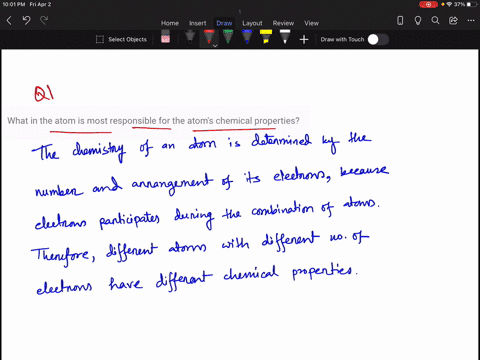 10:01 PM Fri Apr 2
37%
Home Insert Draw Layout Review View
Select Objects
Draw with Touch
Q1
What in the atom is most responsible for the atom's chemical properties?
The chemistry of an atom is determined by the
number and arrangement of its electrons, because
electrons participates during the combination of atoms.
Therefore, different atoms with different no. of
electrons have different chemical properties.